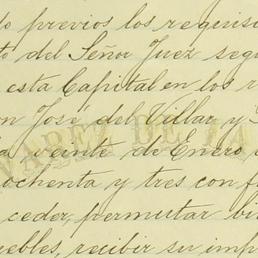 do previos los requisi
to del Señor Juez segu
esta Capital en los r
on José del Villar y
a veinte de Enero
ochenta y tres con f
ceder, permutar bi
uebles, recibir su imp